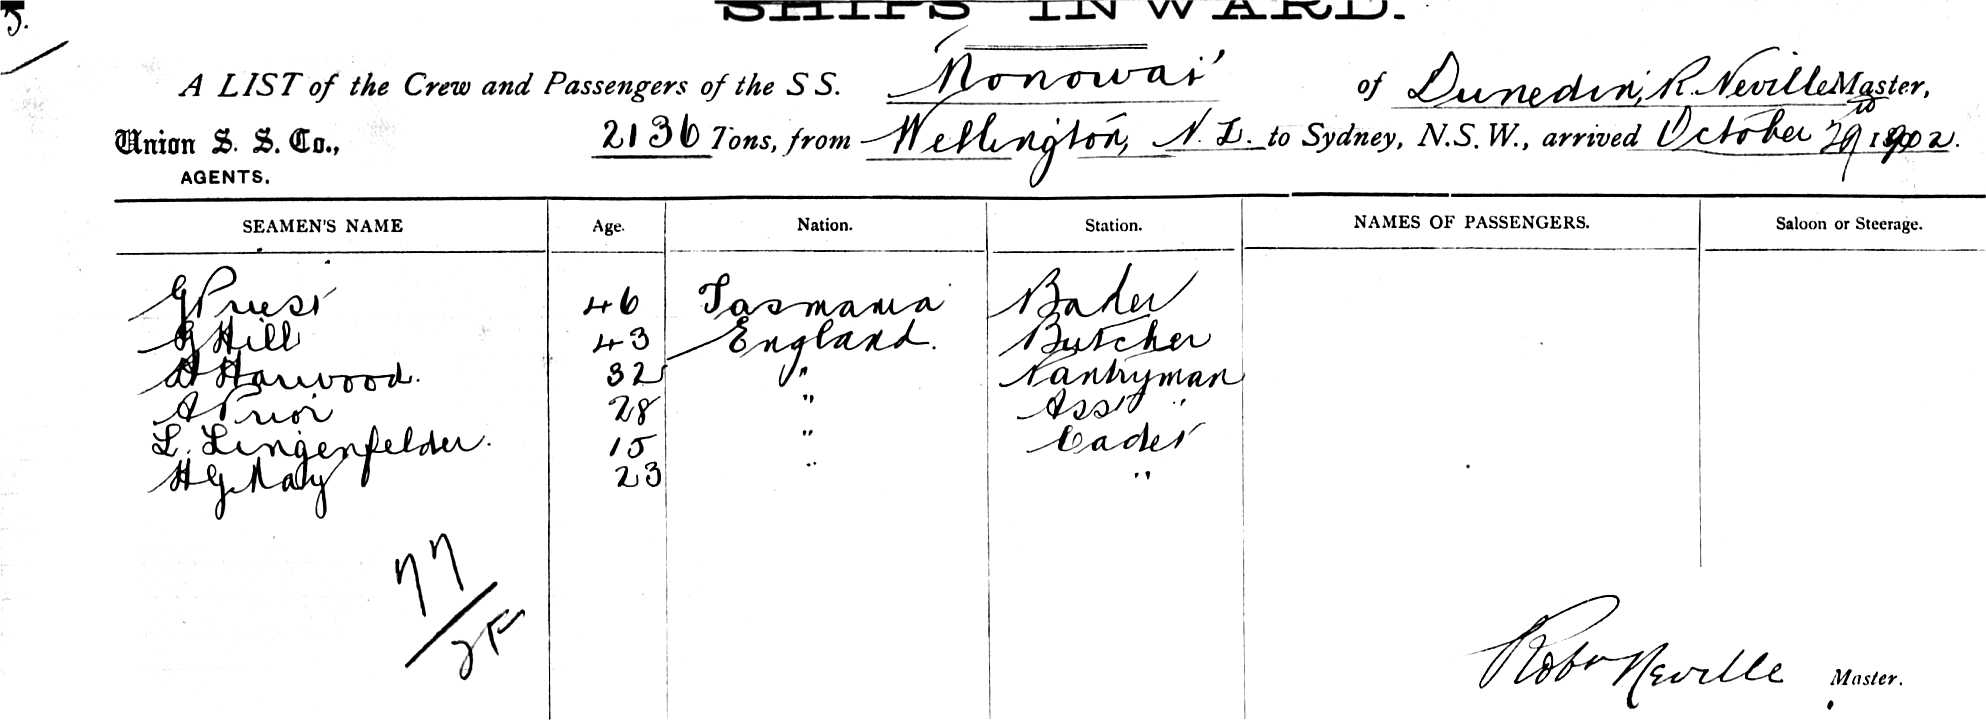 5.
SHIPS INWARD.
A LIST of the Crew and Passengers of the S S. 'Monowai' of Dunedin, R. Neville Master,
Union S. S. Co., 2136 Tons, from Wellington, N.Z. to Sydney, N.S.W., arrived October 29th 1902.
AGENTS.
SEAMEN'S NAME Age. Nation. Station. NAMES OF PASSENGERS. Saloon or Steerage.
G Priest 46 Tasmania Baker
G Hill 43 England. Butcher
A Harwood. 32 " Pantryman
A Prior 28 " Asst "
L. Lingenfelder. 15 " Cadet
H G. May 23 " "
77
Robt Neville Master.